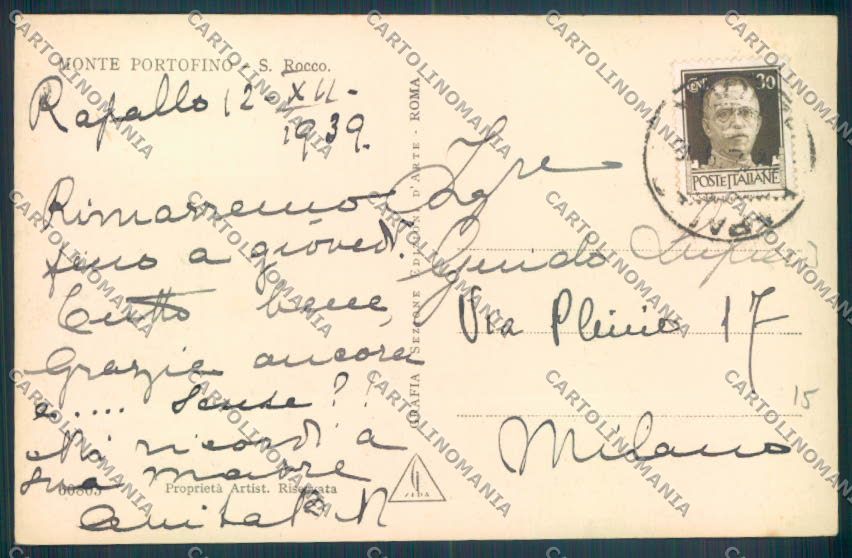 MONTE PORTOFINO - S. Rocco.
Rapallo 12-XII-
1939.
Rimarremo
fino a giovedì.
Tutto bene,
Grazie ancora
e.... scuse?!
Mi ricordi a
sua madre
60803 Proprietà Artist. Riservata
GRAFIA - SEZIONE EDIZIONI D'ARTE - ROMA
CENT 30
POSTE ITALIANE
Guido
Via Plinio 17
15
Milano
CARTOLINOMANIA